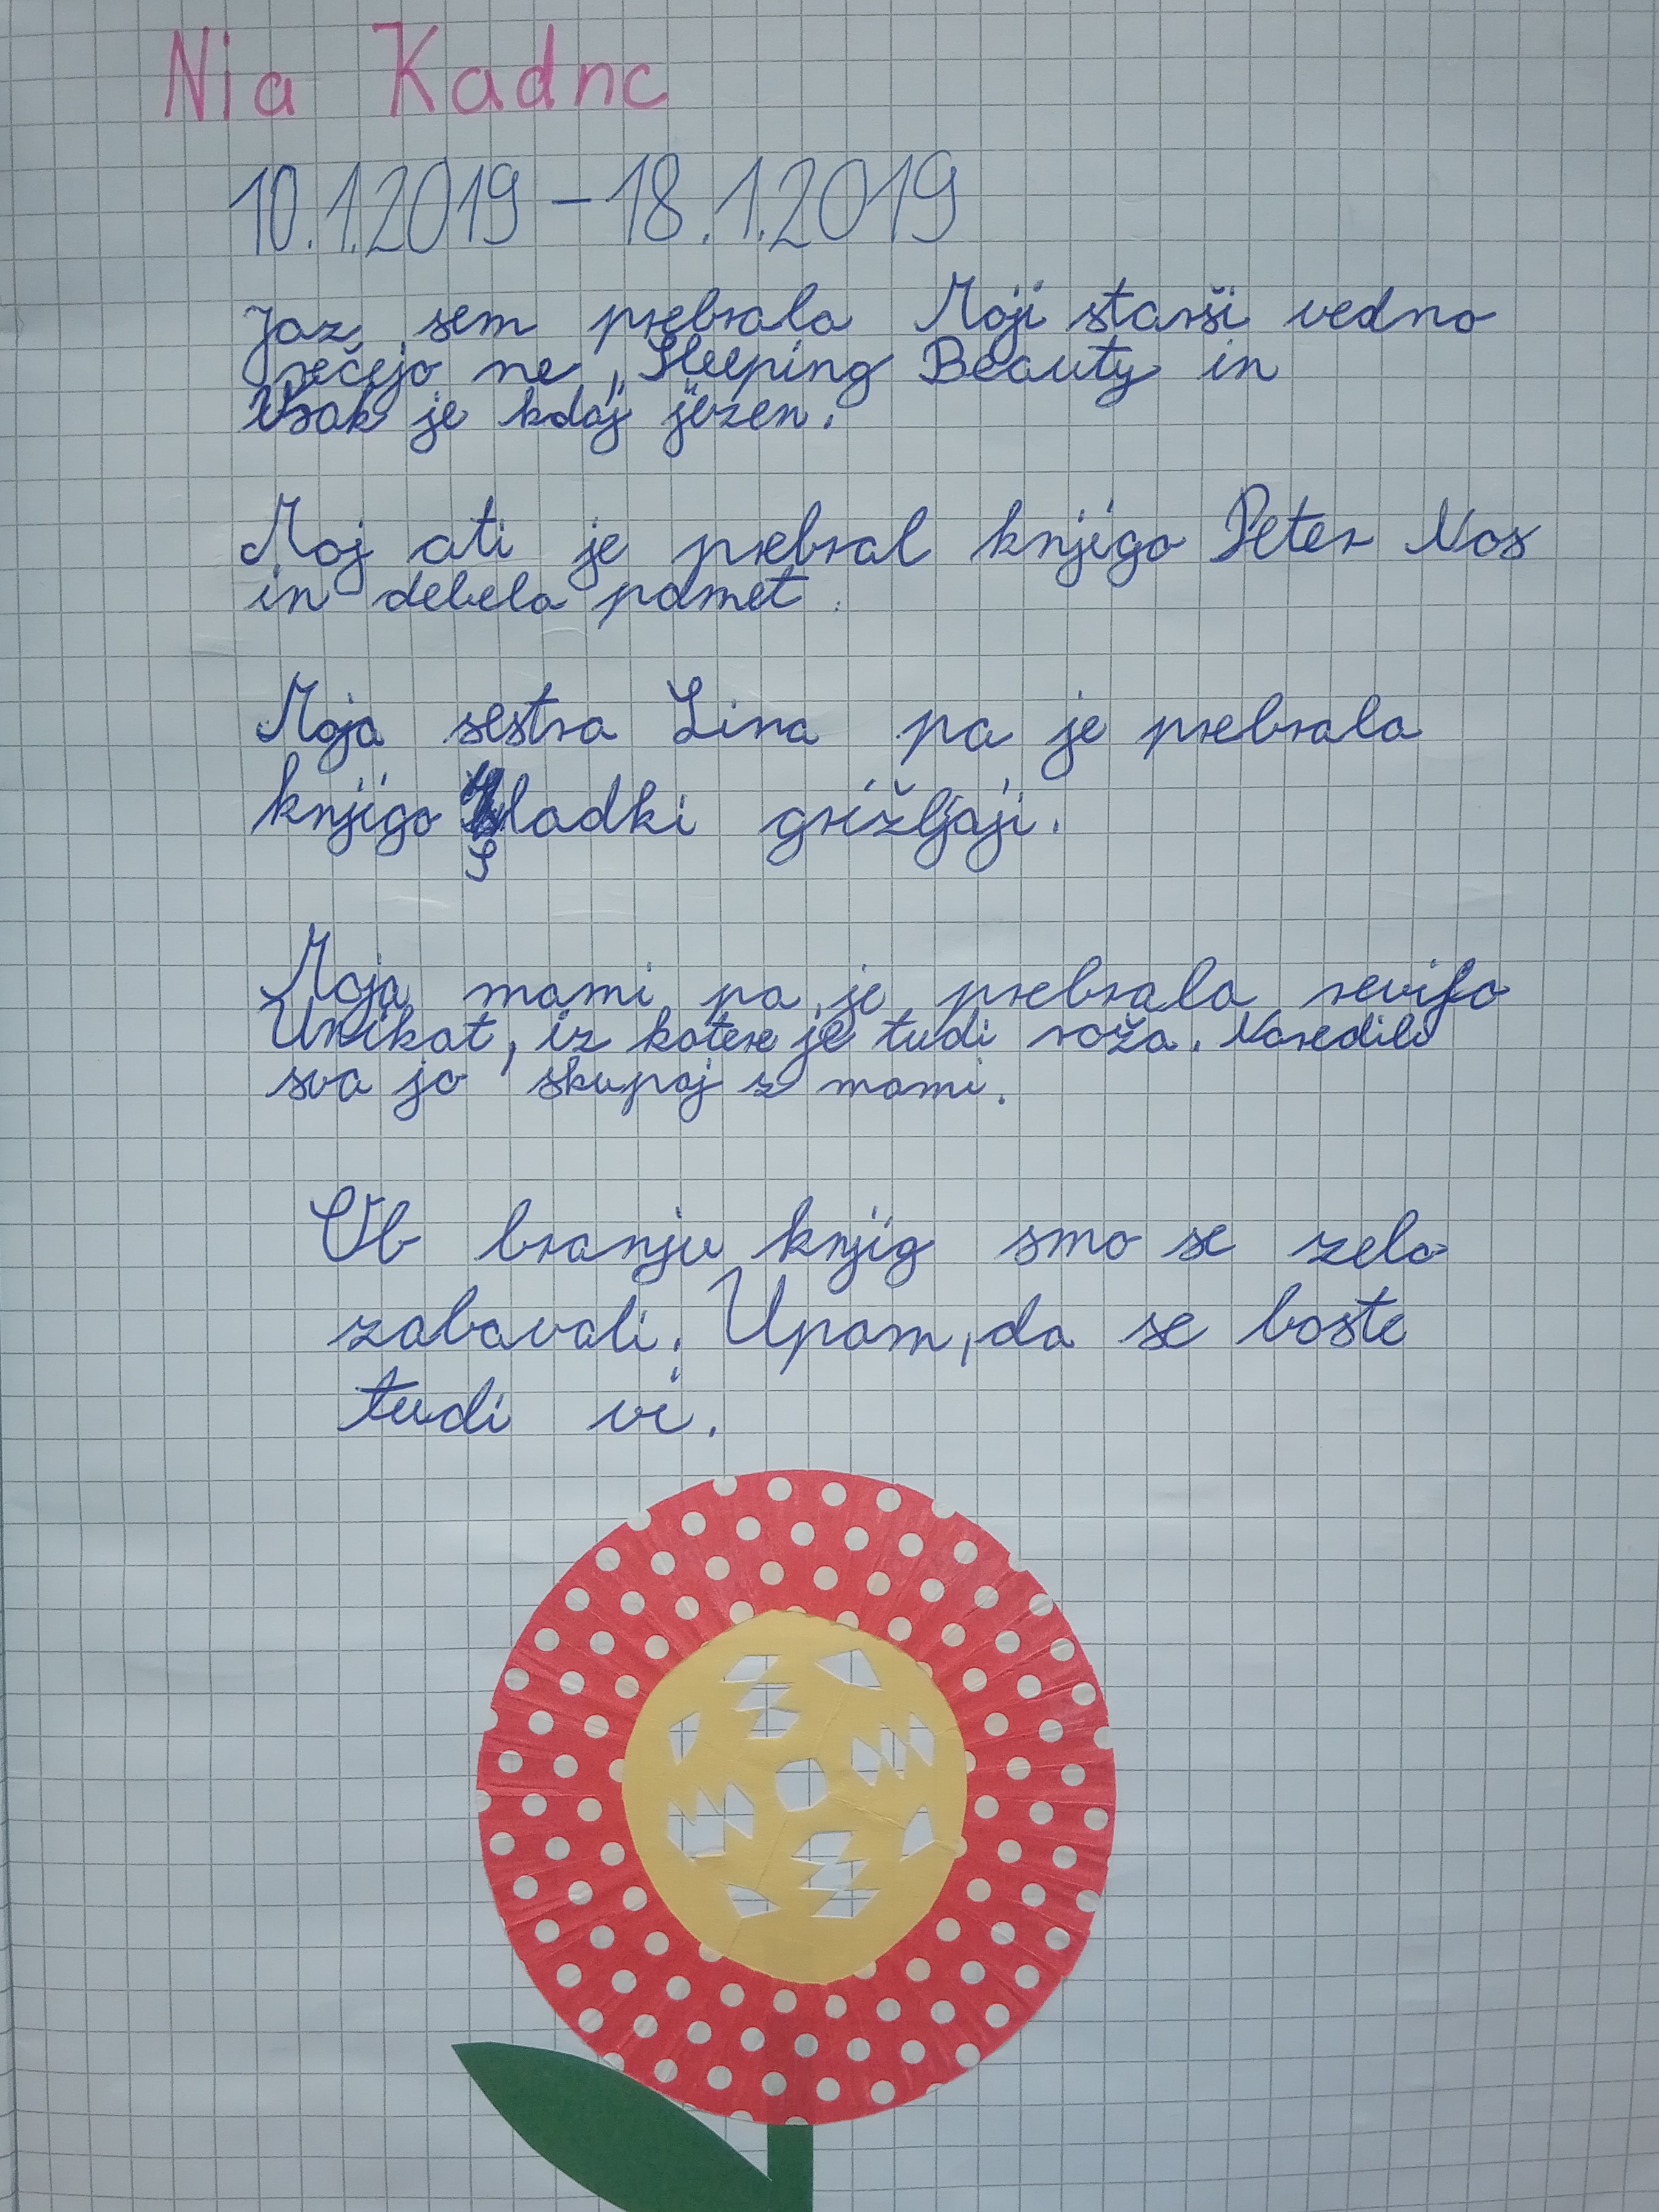 Nia Kadnc
10.1.2019 – 18.1.2019
Jaz sem prebrala Moji starši vedno
rečejo ne, Sleeping Beauty in
Vsak je kdaj jezen.
Moj ati je prebral knjigo Peter Nos
in debela pamet.
Moja sestra Lina pa je prebrala
knjigo Sladki grižljaji.
Moja mami pa je prebrala revijo
Unikat, iz katere je tudi roža. Naredili
sva jo skupaj z mami.
Ob branju knjig smo se zelo
zabavali. Upam, da se boste
tudi vi.